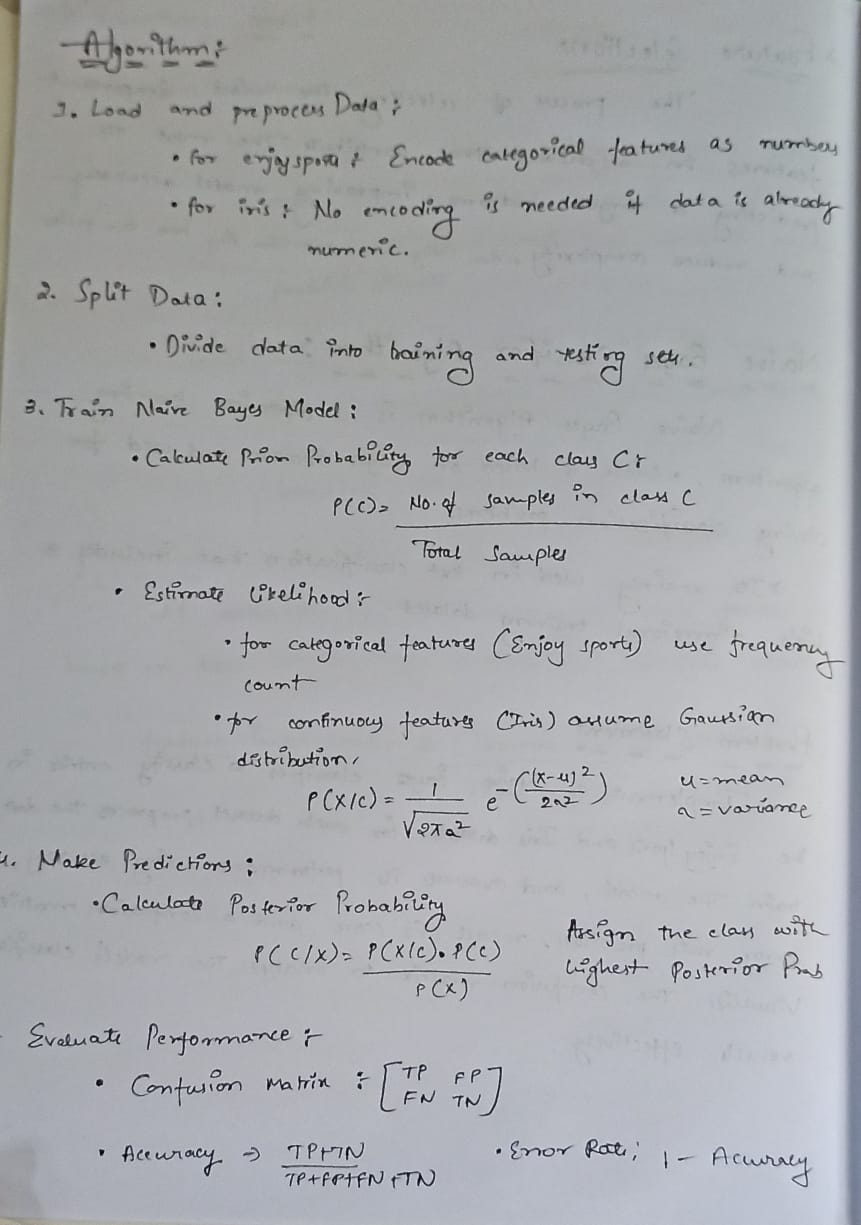 Algorithm:
1. Load and preprocess Data:
• for enjoysport: Encode categorical features as numbers
• for iris: No encoding is needed if data is already
numeric.
2. Split Data:
• Divide data into training and testing sets.
3. Train Naive Bayes Model:
• Calculate Prior Probability for each class C:
P(C) = No. of samples in class C
Total Samples
• Estimate likelihood:
• for categorical features (Enjoy sports) use frequency
count
• for continuous features (Iris) assume Gaussian
distribution,
P(X/C) = 1/√(2πa²) e^-((x-u)²/2a²) u = mean
a = variance
4. Make Predictions:
• Calculate Posterior Probability
P(C/X) = P(X/C). P(C) / P(X) Assign the class with
highest Posterior Prob
Evaluate Performance:
• Confusion Matrix: [TP FP
FN TN]
• Accuracy → TP+TN / TP+FP+FN+TN • Error Rate; 1 - Accuracy